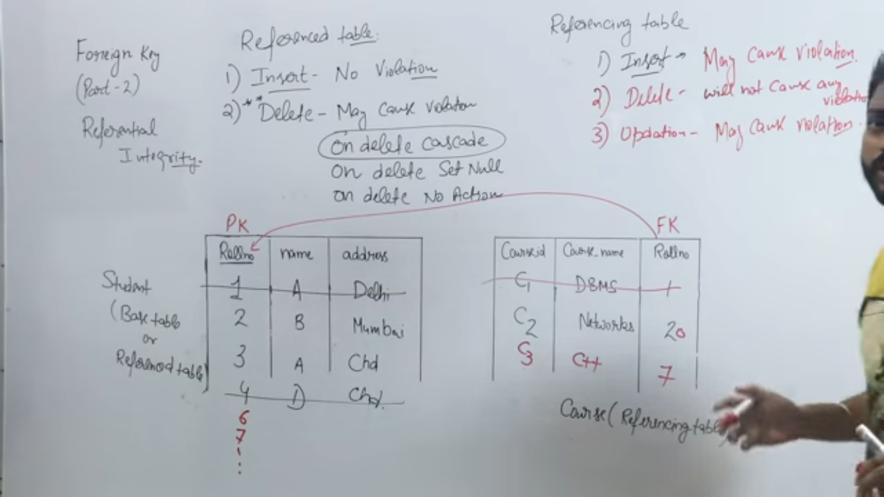 Foreign Key
(Part-2)
Referential
Integrity.
Referenced table:
1) Insert - No Violation
2) ** Delete - May cause violation
On delete cascade
On delete Set Null
on delete No Action
Referencing table
1) Insert - May cause violation.
2) Delete - will not cause any
violation
3) Updation - May cause violation.
PK
Rollno name address
1 A Delhi
2 B Mumbai
3 A Chd
4 D Chd.
6
7
Student
(Base table
or
Referenced table)
FK
Course id Course_name Rollno
C1 DBMS 1
C2 Networks 20
C3 C++ 7
Course (Referencing table